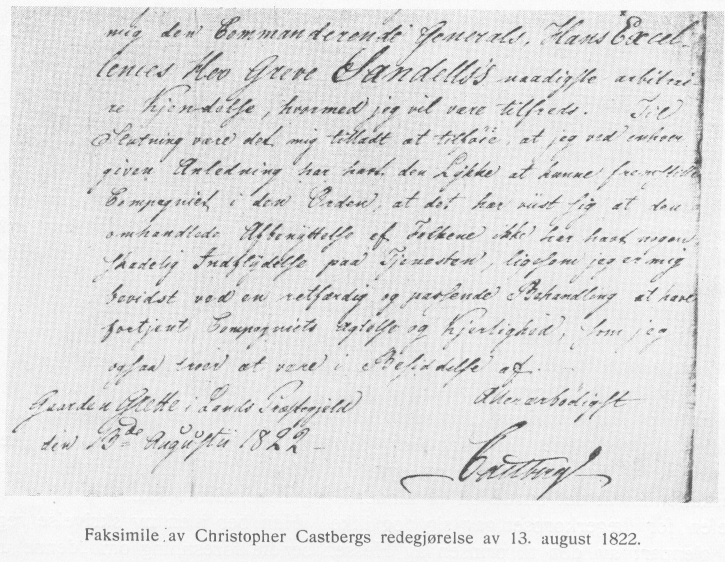 mig den Commanderende Generals, Hans Excel-
lences Herr Greve Sandells's naadigste arbitrai-
re Kjendelse, hvormed jeg vil være tilfreds. Til
Slutning være det mig tilladt at tilföie, at jeg ved enhver
given Anledning har havt den Lykke at kunne fremstille
Compagniet i den Orden, at det har viist sig at den
omhandlede Afbenyttelse af Folkene ikke har havt nogen
skadelig Indflydelse paa Tjenesten, ligesom jeg er mig
bevidst ved en retfærdig og passende Behandling at have
fortjent Compagniets Agtelse og Kjerlighed, som jeg
ogsaa troer at være i Besiddelse af.
Gaarden Grette i Lands Præstegjeld
den 13de Augustii 1822
Ærbødigst
Castberg
Faksimile av Christopher Castbergs redegjørelse av 13. august 1822.